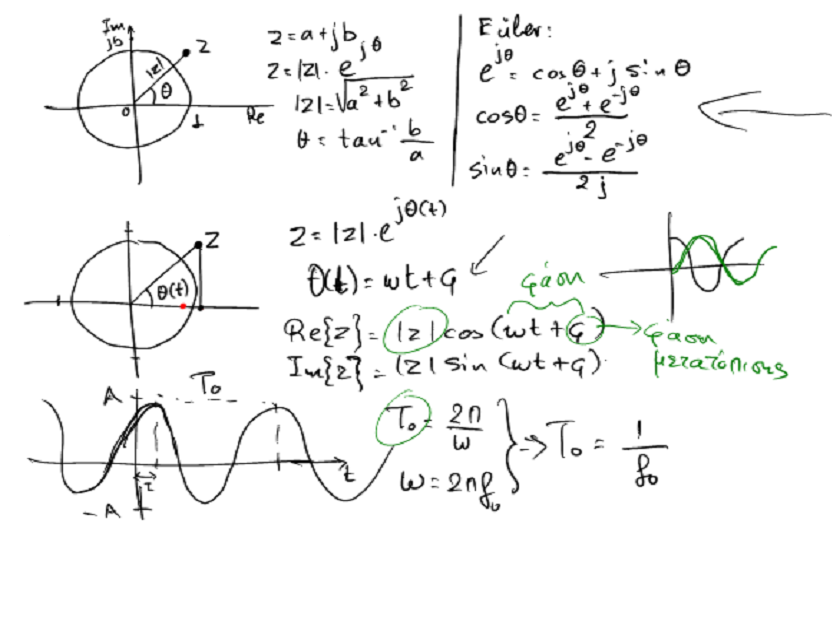 Im
jb
z
|z|
θ
0
1
Re
z = a + jb
z = |z| · e^{jθ}
|z| = √(a² + b²)
θ = tan⁻¹ b/a
Euler:
e^{jθ} = cosθ + j sinθ
cosθ = (e^{jθ} + e^{-jθ})/2
sinθ = (e^{jθ} - e^{-jθ})/2j
z
θ(t)
z = |z| · e^{jθ(t)}
θ(t) = ωt + φ
φάση
Re{z} = |z| cos(ωt + φ) → φάση
μετατόπισης
Im{z} = |z| sin(ωt + φ)
A
T₀
τ
t
-A
T₀ = 2π/ω
ω = 2πf₀
⇒ T₀ = 1/f₀